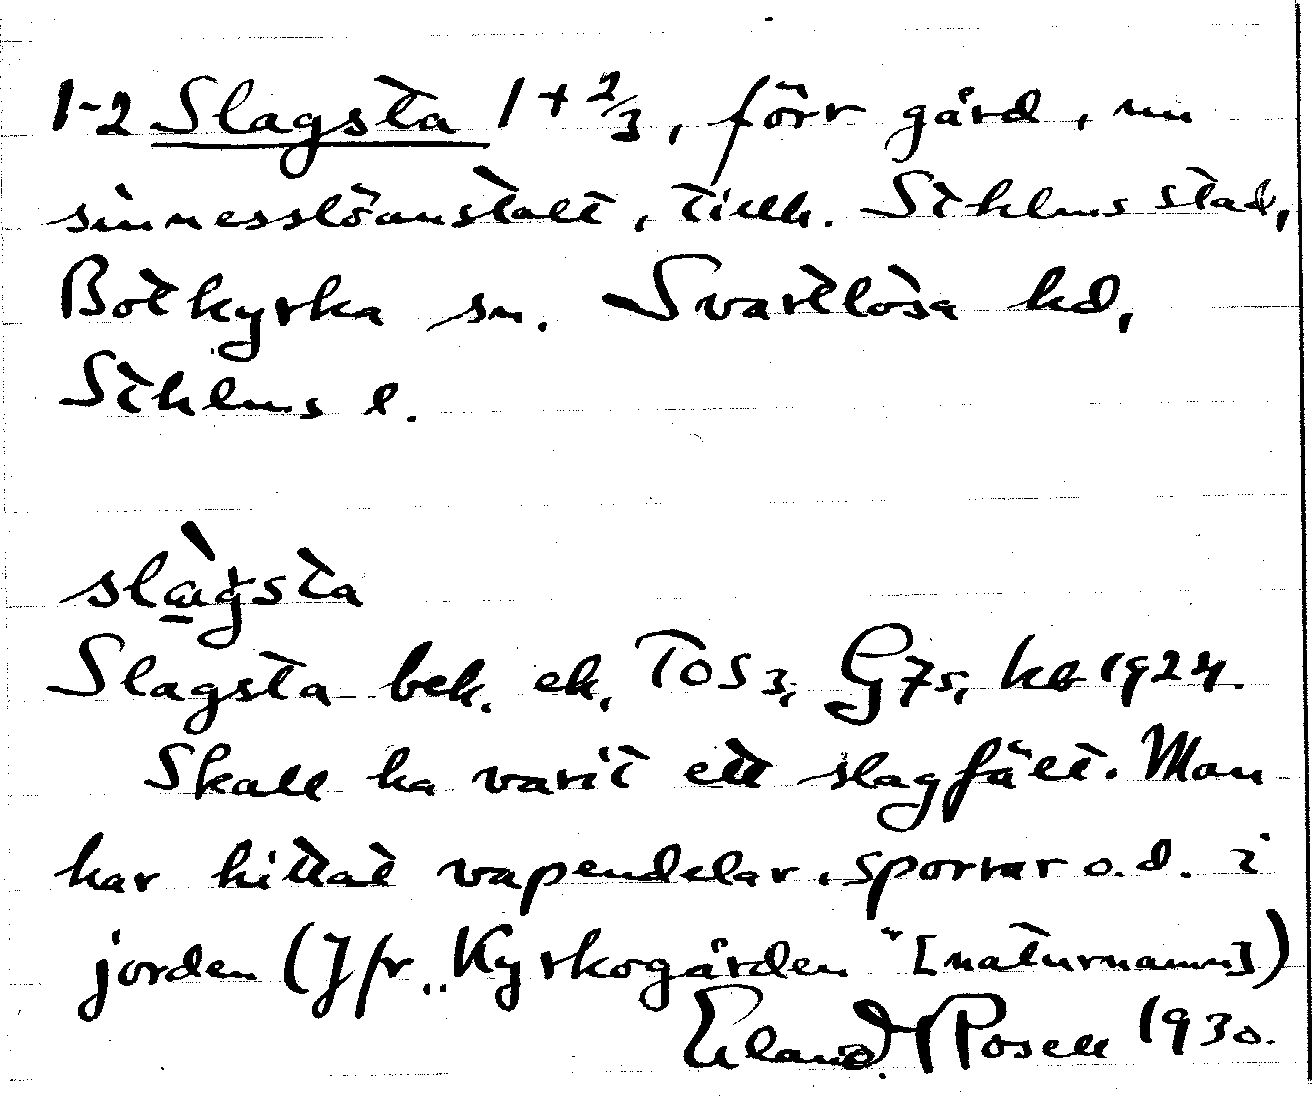 1-2 Slagsta 1 + 2/3, förr gård, nu
sinnesslöanstalt, tillh. Sthlms stad,
Botkyrka sn. Svartlösa hd,
Sthlms l.
slàgsta
Slagsta bek. ek, TOS 3, G7s, hb 1924.
Skall ha varit ett slagfält. Man
har hittat vapendelar, sporrar o.d. i
jorden (Jfr „Kyrkogården" [naturnamn])
Erland Rosell 1930.